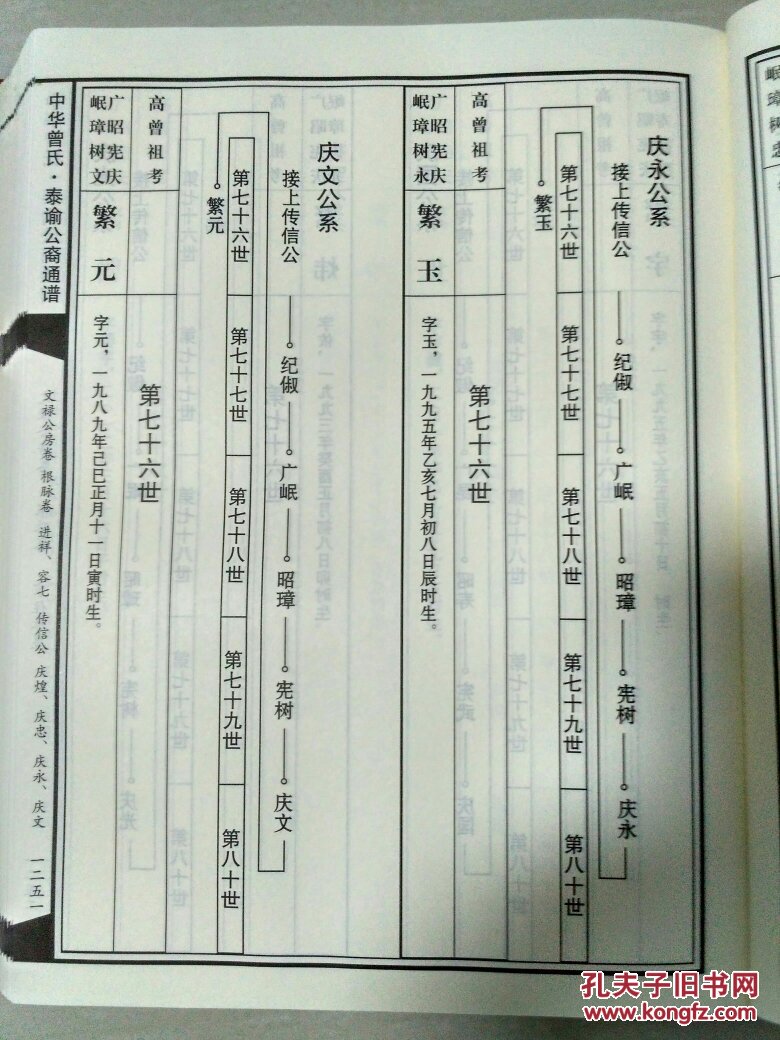 庆永公系
接上传信公——。纪俶——。广岷——。昭璋——。宪树——。庆永
第七十六世 第七十七世 第七十八世 第七十九世 第八十世
。繁玉
第七十六世
高曾祖考
广昭宪庆
岷璋树永
繁玉
字玉，一九九五年乙亥七月初八日辰时生。
庆文公系
接上传信公——。纪俶——。广岷——。昭璋——。宪树——。庆文
第七十六世 第七十七世 第七十八世 第七十九世 第八十世
。繁元
第七十六世
高曾祖考
广昭宪庆
岷璋树文
繁元
字元，一九八九年己巳正月十一日寅时生。
中华曾氏·泰谕公裔通谱
文禄公房卷 根脉卷 进祥、容七 传信公 庆煌、庆忠、庆永、庆文 一二五一
岷璋树忠
孔夫子旧书网
www.kongfz.com